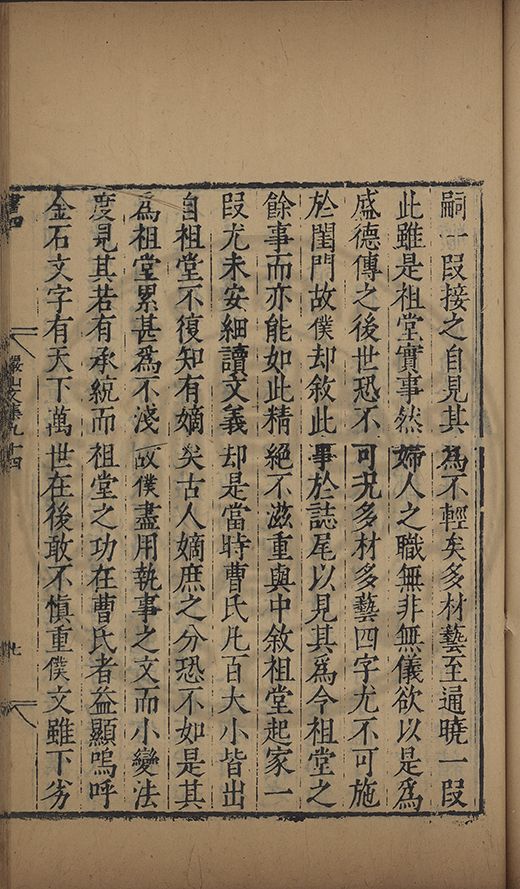 嗣一段接之自見其為不輕矣多材藝至通曉一段
此雖是祖堂實事然婦人之職無非無儀欲以是為
盛德傳之後世恐不可况多材多藝四字尤不可施
於閨門故僕却敘此事於誌尾以見其為今祖堂之
餘事而亦能如此精絕不滋重與中敘祖堂起家一
段尤未安細讀文義却是當時曹氏凡百大小皆出
自祖堂不復知有嫡矣古人嫡庶之分恐不如是其
為祖堂累甚為不淺故僕盡用執事之文而小變法
度見其若有承統而祖堂之功在曹氏者益顯嗚呼
金石文字有天下萬世在後敢不慎重僕文雖下劣
書四 巖山文集九十四 九